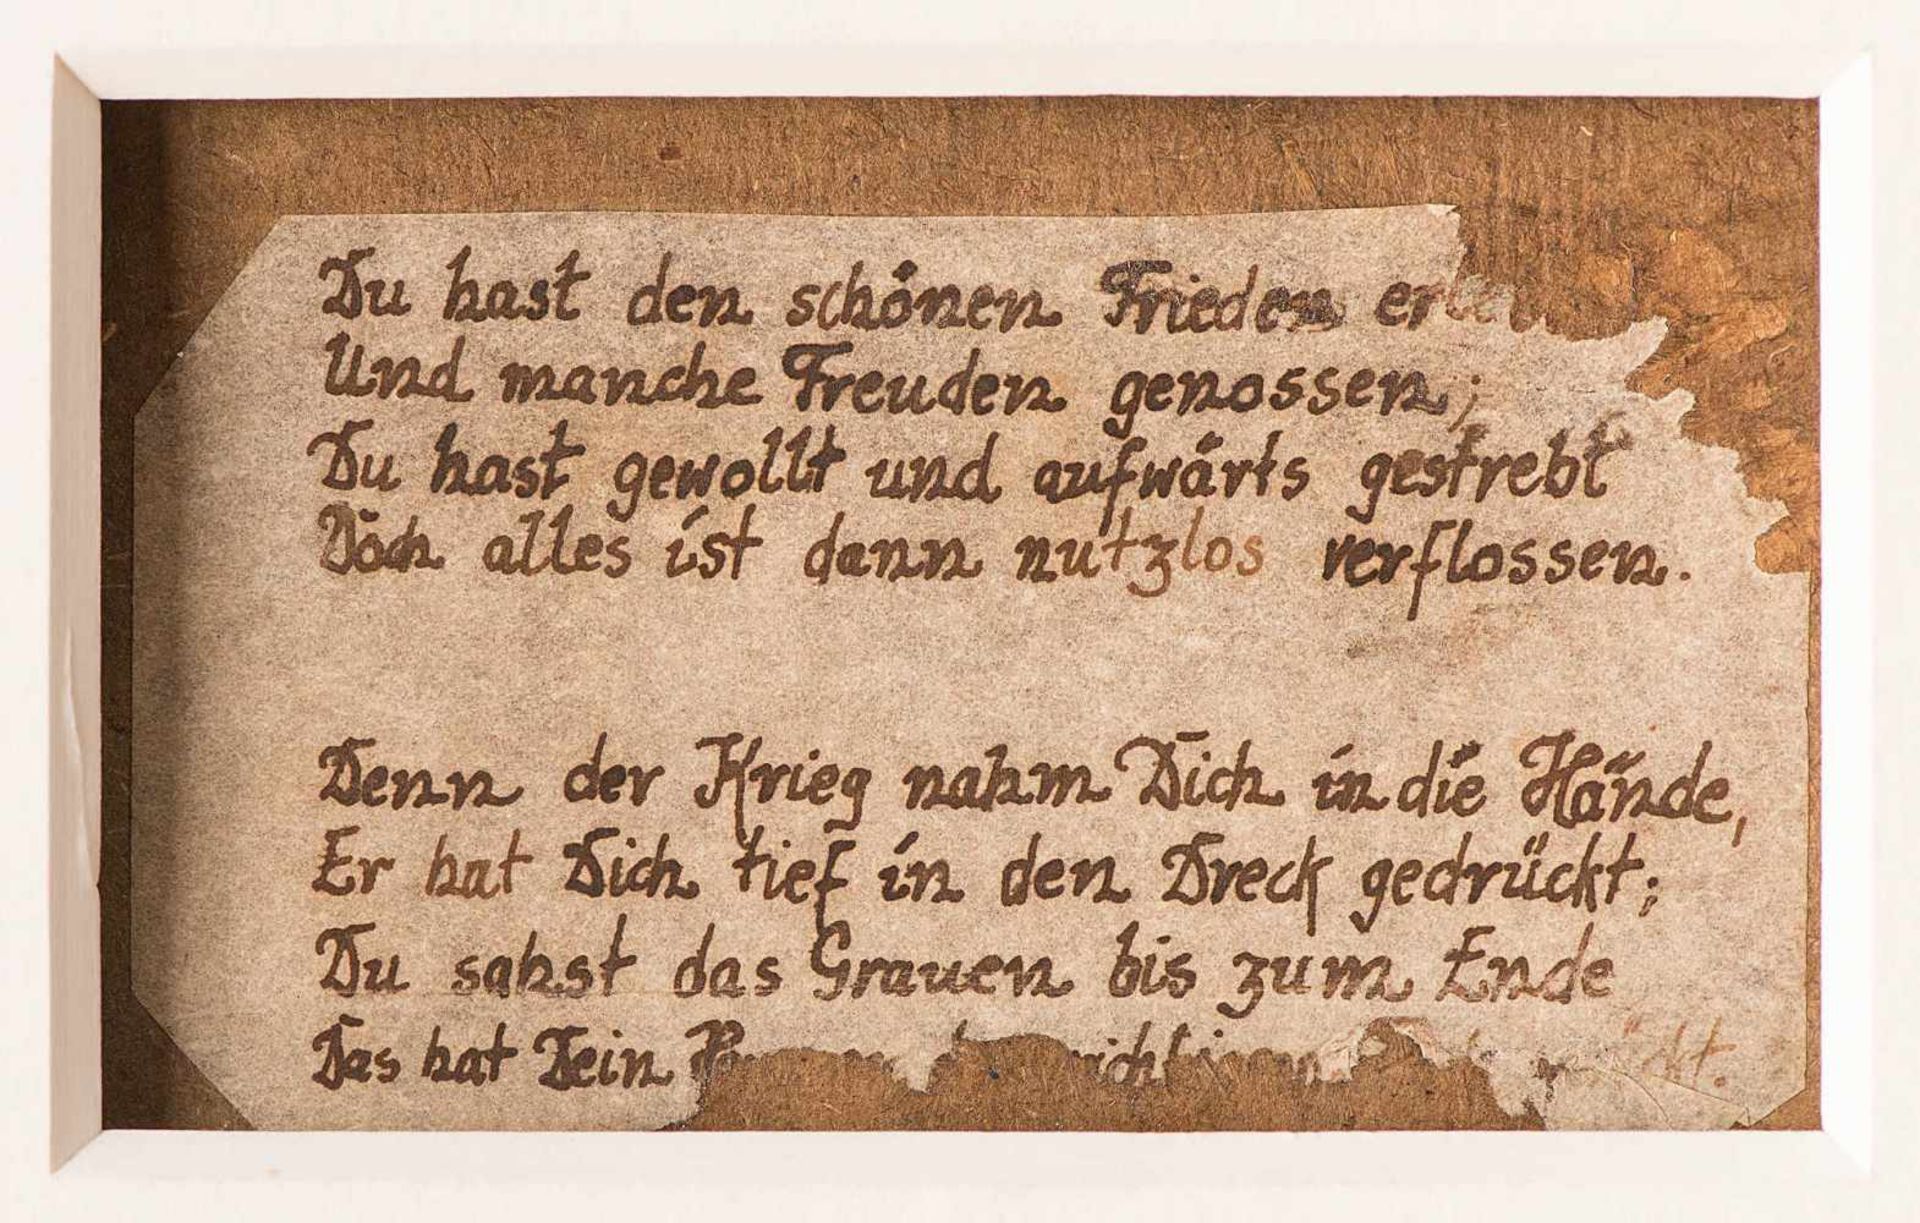 Du hast den schönen Frieden
Und manche Freuden genossen;
Du hast gewollt und aufwärts gestrebt
Doch alles ist dann nutzlos verflossen.
Denn der Krieg nahm Dich in die Hände,
Er hat Dich tief in den Dreck gedrückt;
Du sahst das Grauen bis zum Ende
Das hat Dein